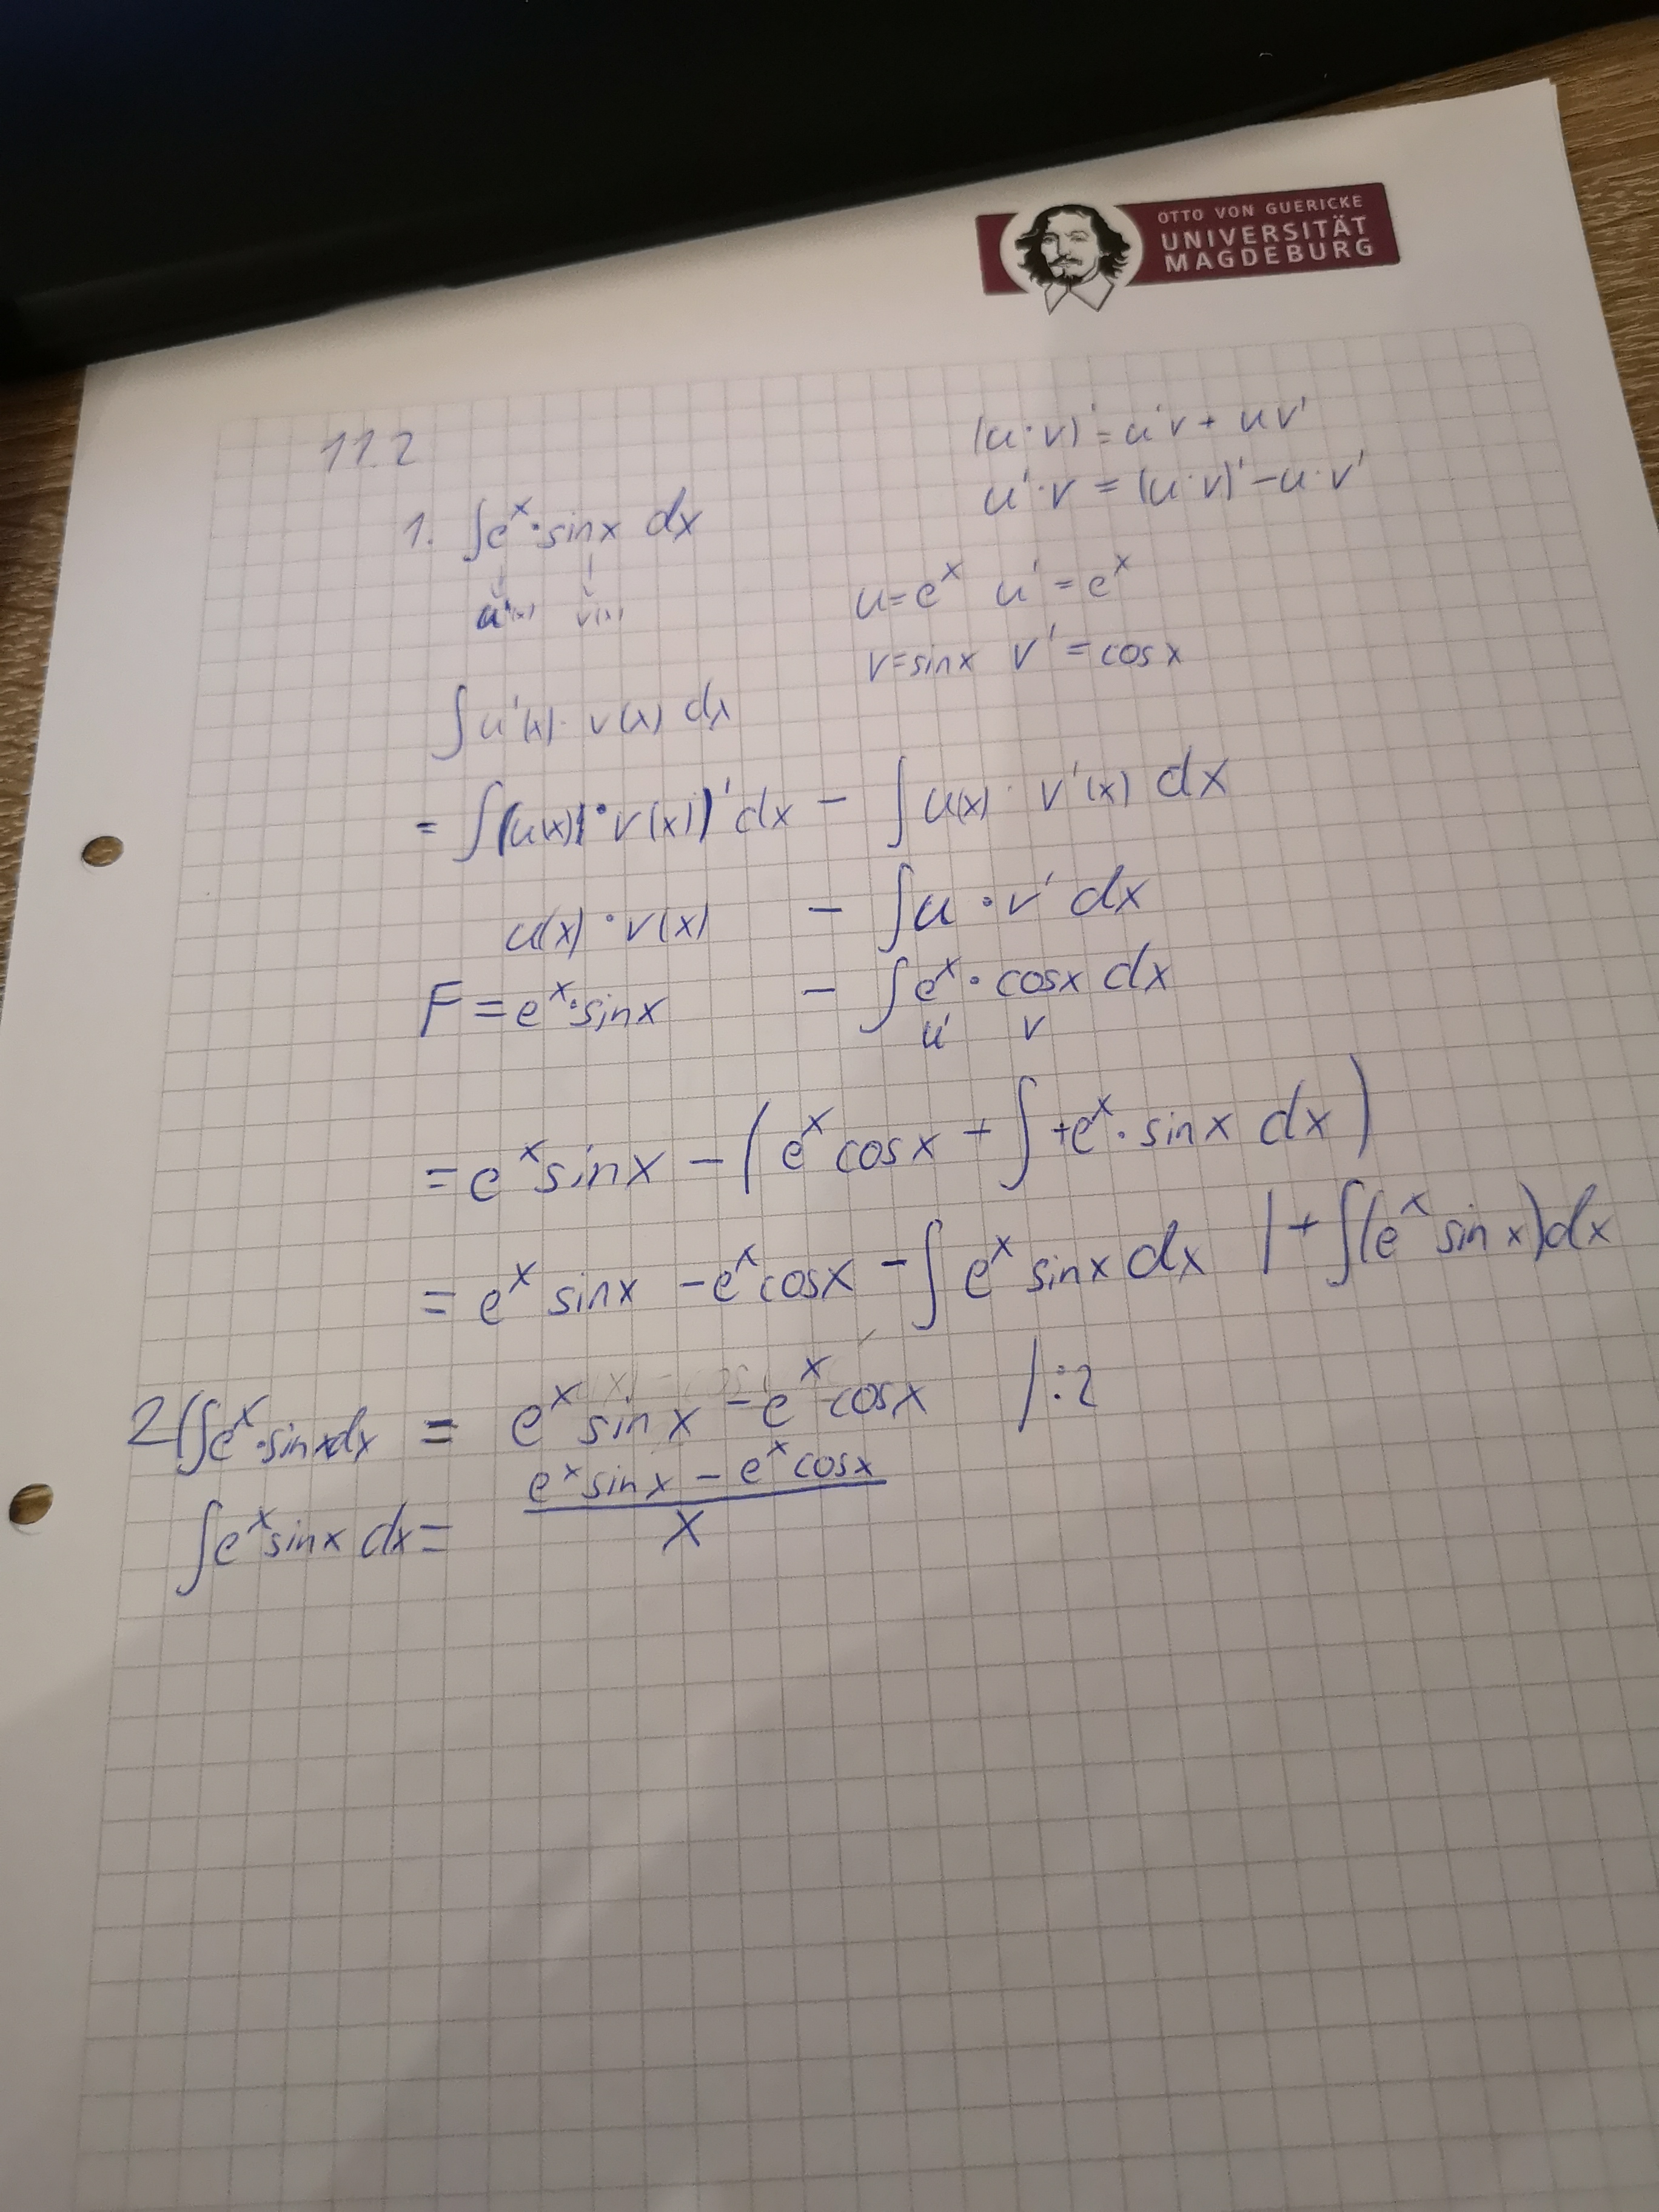 OTTO VON GUERICKE
UNIVERSITÄT
MAGDEBURG
11.2
(u·v)' = u'v + uv'
u'·v = (u·v)' - u·v'
1. ∫e^x·sinx dx
u'(x) v(x)
u=e^x u'=e^x
v=sinx v'=cosx
∫u'(x)·v(x) dx
= ∫(u(x)·v(x))'dx - ∫u(x)·v'(x) dx
u(x)·v(x) - ∫u·v' dx
F = e^x·sinx - ∫e^x·cosx dx
u' v
= e^x sinx - (e^x cosx + ∫+e^x·sinx dx)
= e^x sinx - e^x cosx - ∫e^x sinx dx |+∫(e^x sinx)dx
2(∫e^x·sinxdx = e^x sinx - e^x cosx |:2
∫e^x sinx dx = e^x sinx - e^x cosx
x